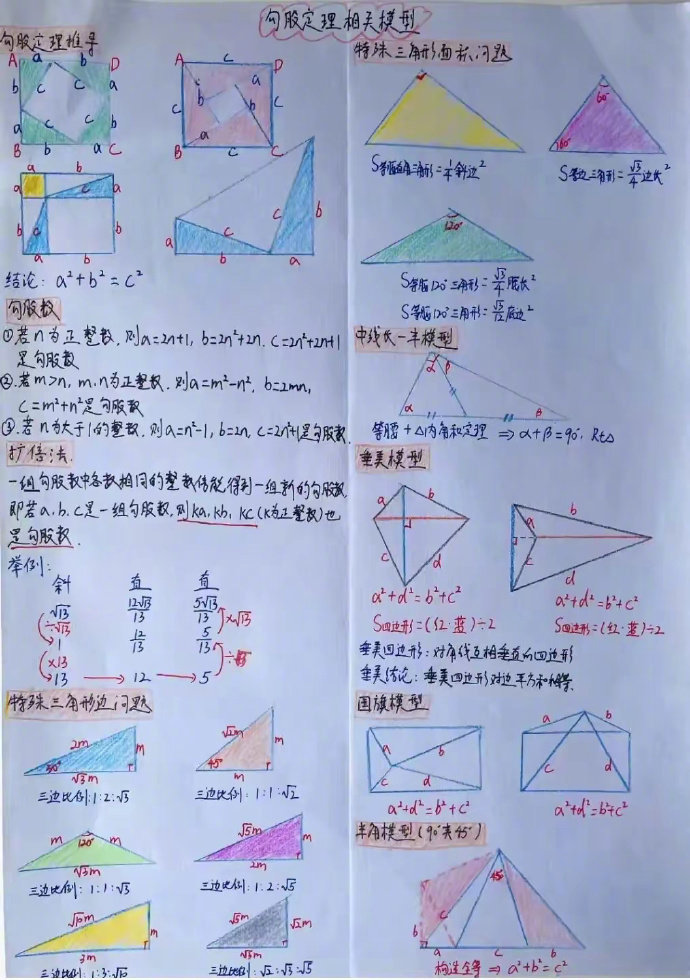 勾股定理相关模型
勾股定理推导
A a b D
b c c a
a c c b
B b a C
A c D
c b a c
b
a
B c C
a b
a c a
b c b
a b
c
c b
a
b a
结论: a²+b²=c²
勾股数
①若n为正整数,则a=2n+1, b=2n²+2n, c=2n²+2n+1
是勾股数
②.若m>n, m、n为正整数,则a=m²-n², b=2mn,
c=m²+n²是勾股数
③.若n为大于1的整数,则a=n²-1, b=2n, c=n²+1是勾股数.
扩倍法.
一组勾股数中各数相同的整数倍能得到一组新的勾股数
即若a,b,c是一组勾股数,则ka,kb,kc(k为正整数)也
是勾股数.
举例:
斜 直 直
√13 12√13/13 5√13/13
÷√13 ×√13
1 12/13 5/13
×13
13 → 12 → 5
特殊三角形边问题
2m m
30° √3m
三边比例:1:2:√3
√2m m
45° m
三边比例:1:1:√2
m m
120°
√3m
三边比例:1:1:√3
√5m m
2m
三边比例:1:2:√5
√10m m
3m
三边比例:1:3:√10
√5m √2m
√3m
三边比例:√2:√3:√5
特殊三角形面积问题
S等腰直角三角形=1/4斜边²
60°
60°
S等边三角形=√3/4边长²
120°
S等腰120°三角形=√3/4腰长²
S等腰120°三角形=√3/12底边²
中线长一半模型
α β
α β
等腰+△内角和定理 ⇒α+β=90°, Rt△
垂美模型
a b
c d
a²+d²=b²+c²
S四边形=(红·蓝)÷2
b
a
c d
a²+d²=b²+c²
S四边形=(红·蓝)÷2
垂美四边形:对角线互相垂直的四边形
垂美结论:垂美四边形对边平方和相等.
国旗模型
a b
c d
a²+d²=b²+c²
a b
c d
a²+d²=b²+c²
半角模型(90°夹45°)
45°
c
b
a c b
构造全等 ⇒ a²+b²=c²